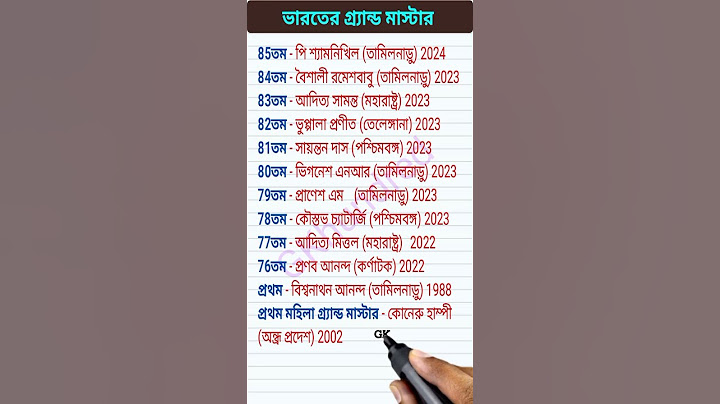 ভারতের গ্র্যান্ড মাস্টার
85তম - পি শ্যামনিখিল (তামিলনাড়ু) 2024
84তম - বৈশালী রমেশবাবু (তামিলনাড়ু) 2023
83তম - আদিত্য সামন্ত (মহারাষ্ট্র) 2023
82তম - ভুপ্পালা প্রণীত (তেলেঙ্গানা) 2023
81তম - সায়ন্তন দাস (পশ্চিমবঙ্গ) 2023
80তম - ভিগনেশ এনআর (তামিলনাড়ু) 2023
79তম - প্রাণেশ এম (তামিলনাড়ু) 2023
78তম - কৌস্তভ চ্যাটার্জি (পশ্চিমবঙ্গ) 2023
77তম - আদিত্য মিত্তল (মহারাষ্ট্র) 2022
76তম - প্রণব আনন্দ (কর্ণাটক) 2022
প্রথম - বিশ্বনাথন আনন্দ (তামিলনাড়ু) 1988
প্রথম মহিলা গ্র্যান্ড মাস্টার - কোনেরু হাম্পী
(অন্ধ্র প্রদেশ) 2002
GK